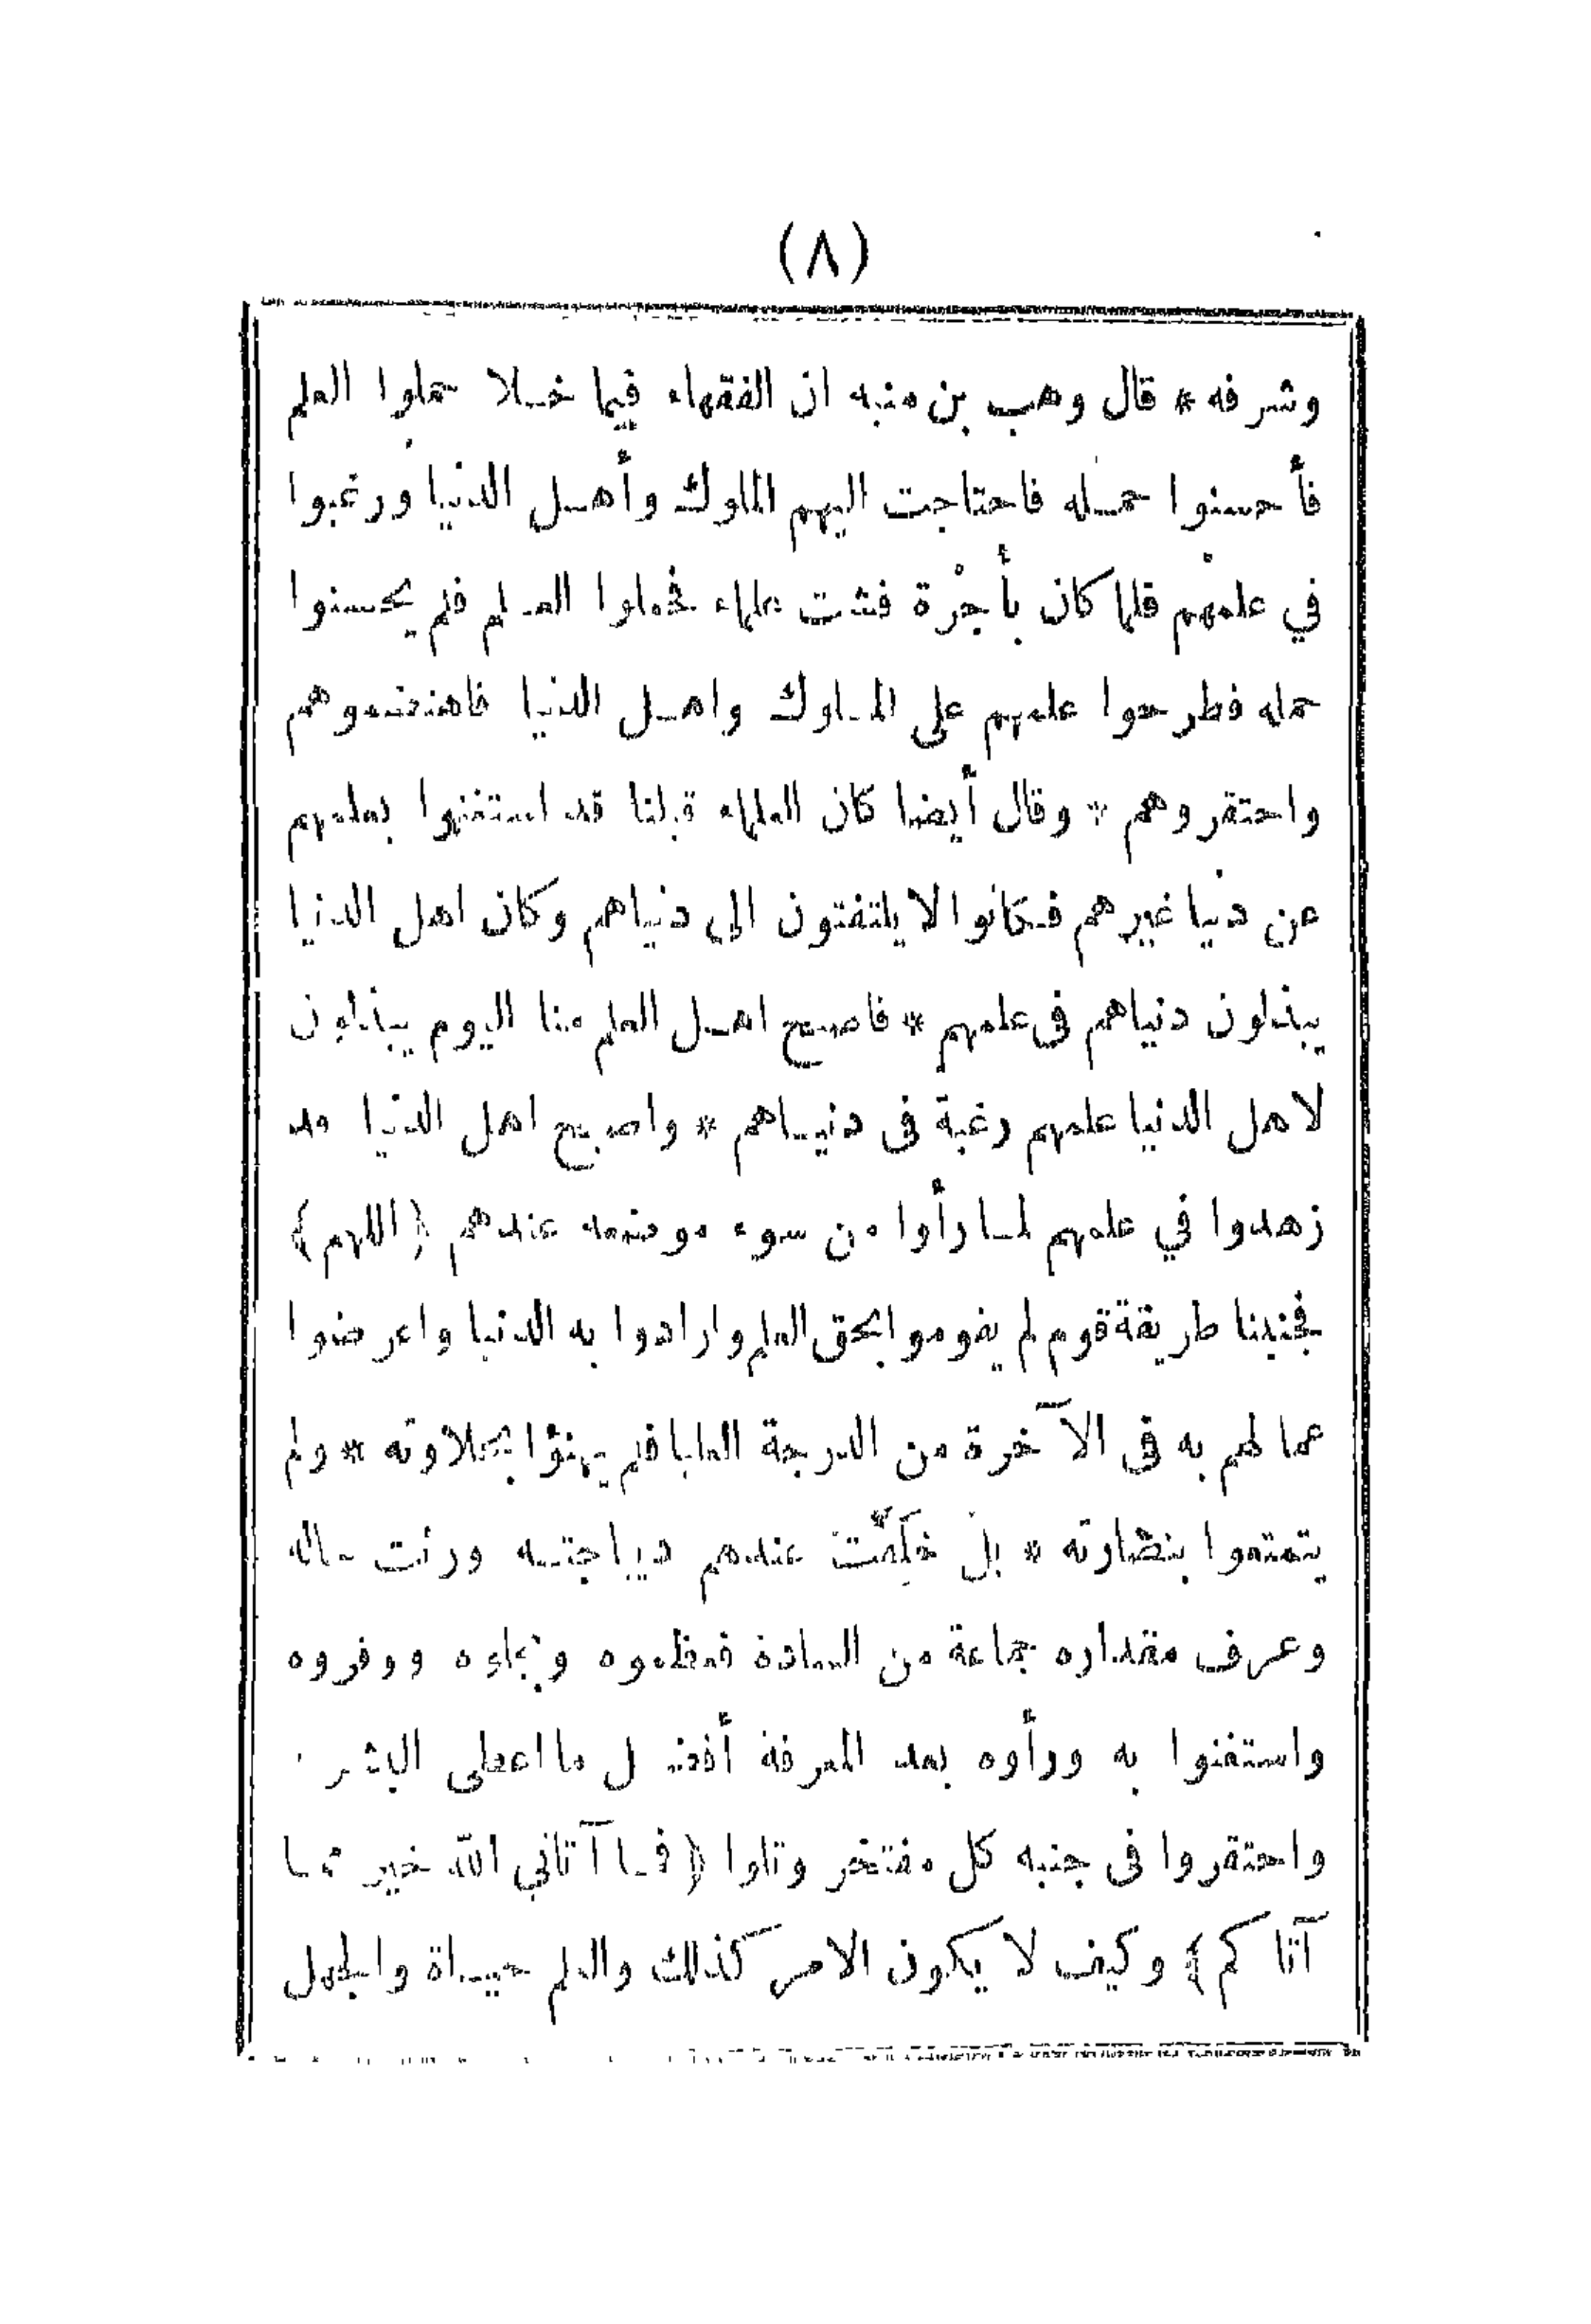 (٨)
وشرفه * قال وهب بن منبه ان الفقهاء فيما خلا حملوا العلم
فأحسنوا حمله فاحتاجت اليهم الملوك وأهل الدنيا ورغبوا
في علمهم فلما كان بأجرة فشت علماء فحملوا العلم فلم يحسنوا
حمله فطرحوا علمهم على الملوك واهل الدنيا فاهتضموهم
واحتقروهم * وقال أيضا كان العلماء قبلنا قد استغنوا بعلمهم
عن دنيا غيرهم فكانوا لا يلتفتون الى دنياهم وكان اهل الدنيا
يبذلون دنياهم فى علمهم * فاصبح اهل العلم منا اليوم يبذلون
لاهل الدنيا علمهم رغبة فى دنياهم * واصبح اهل الدنيا قد
زهدوا في علمهم لما رأوا من سوء موضعه عندهم (اللهم)
فجنبنا طريقة قوم لم يقوموا بحق العلم وارادوا به الدنيا واعرضوا
عما لهم به فى الآخرة من الدرجة العليا فلم يهنؤا بحلاوته * ولم
يتمتعوا بنضارته * بل خلقت عندهم ديباجته ورثت حاله
وعرف مقداره جماعة من السادة فعظموه وبجلوه ووقروه
واستغنوا به ورأوه بعد المعرفة أفضل ما اعطى البشر
واحتقروا فى جنبه كل مفتخر وتلوا (فما آتاني الله خير مما
آتاكم) وكيف لا يكون الامر كذلك والعلم حياة والجهل